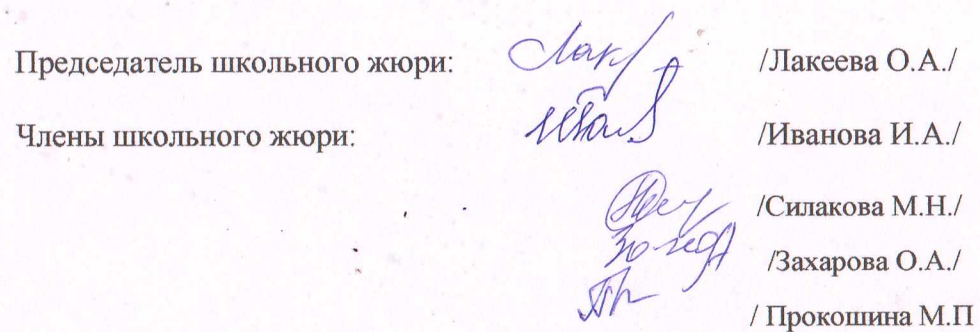 Председатель школьного жюри: Лак /Лакеева О.А./
Члены школьного жюри: /Иванова И.А./
/Силакова М.Н./
/Захарова О.А./
/ Прокошина М.П